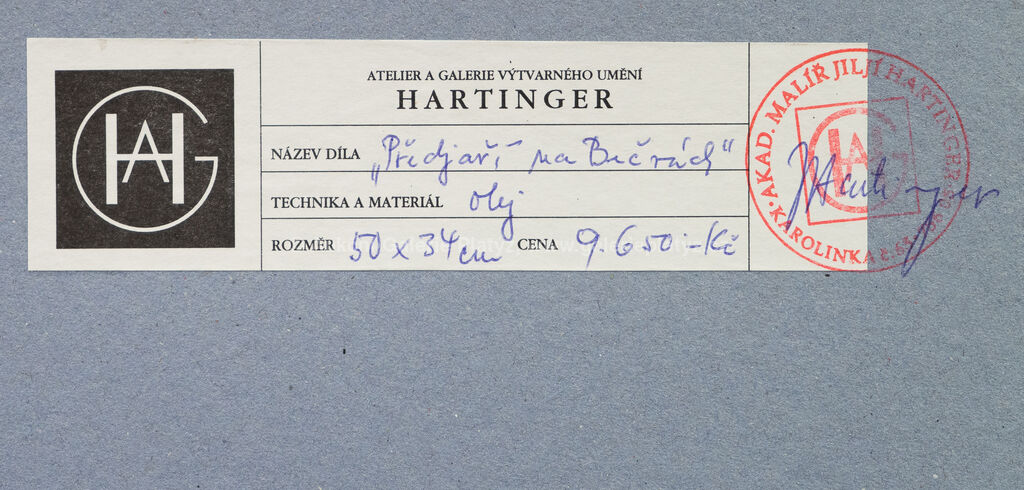 HAG
ATELIER A GALERIE VÝTVARNÉHO UMĚNÍ
HARTINGER
NÁZEV DÍLA „Předjaří na Bečvách“
TECHNIKA A MATERIÁL olej
ROZMĚR 50 x 34 cm CENA 9.650,-Kč
AKAD. MALÍŘ JILJÍ HARTINGER
KAROLINKA
JHartinger